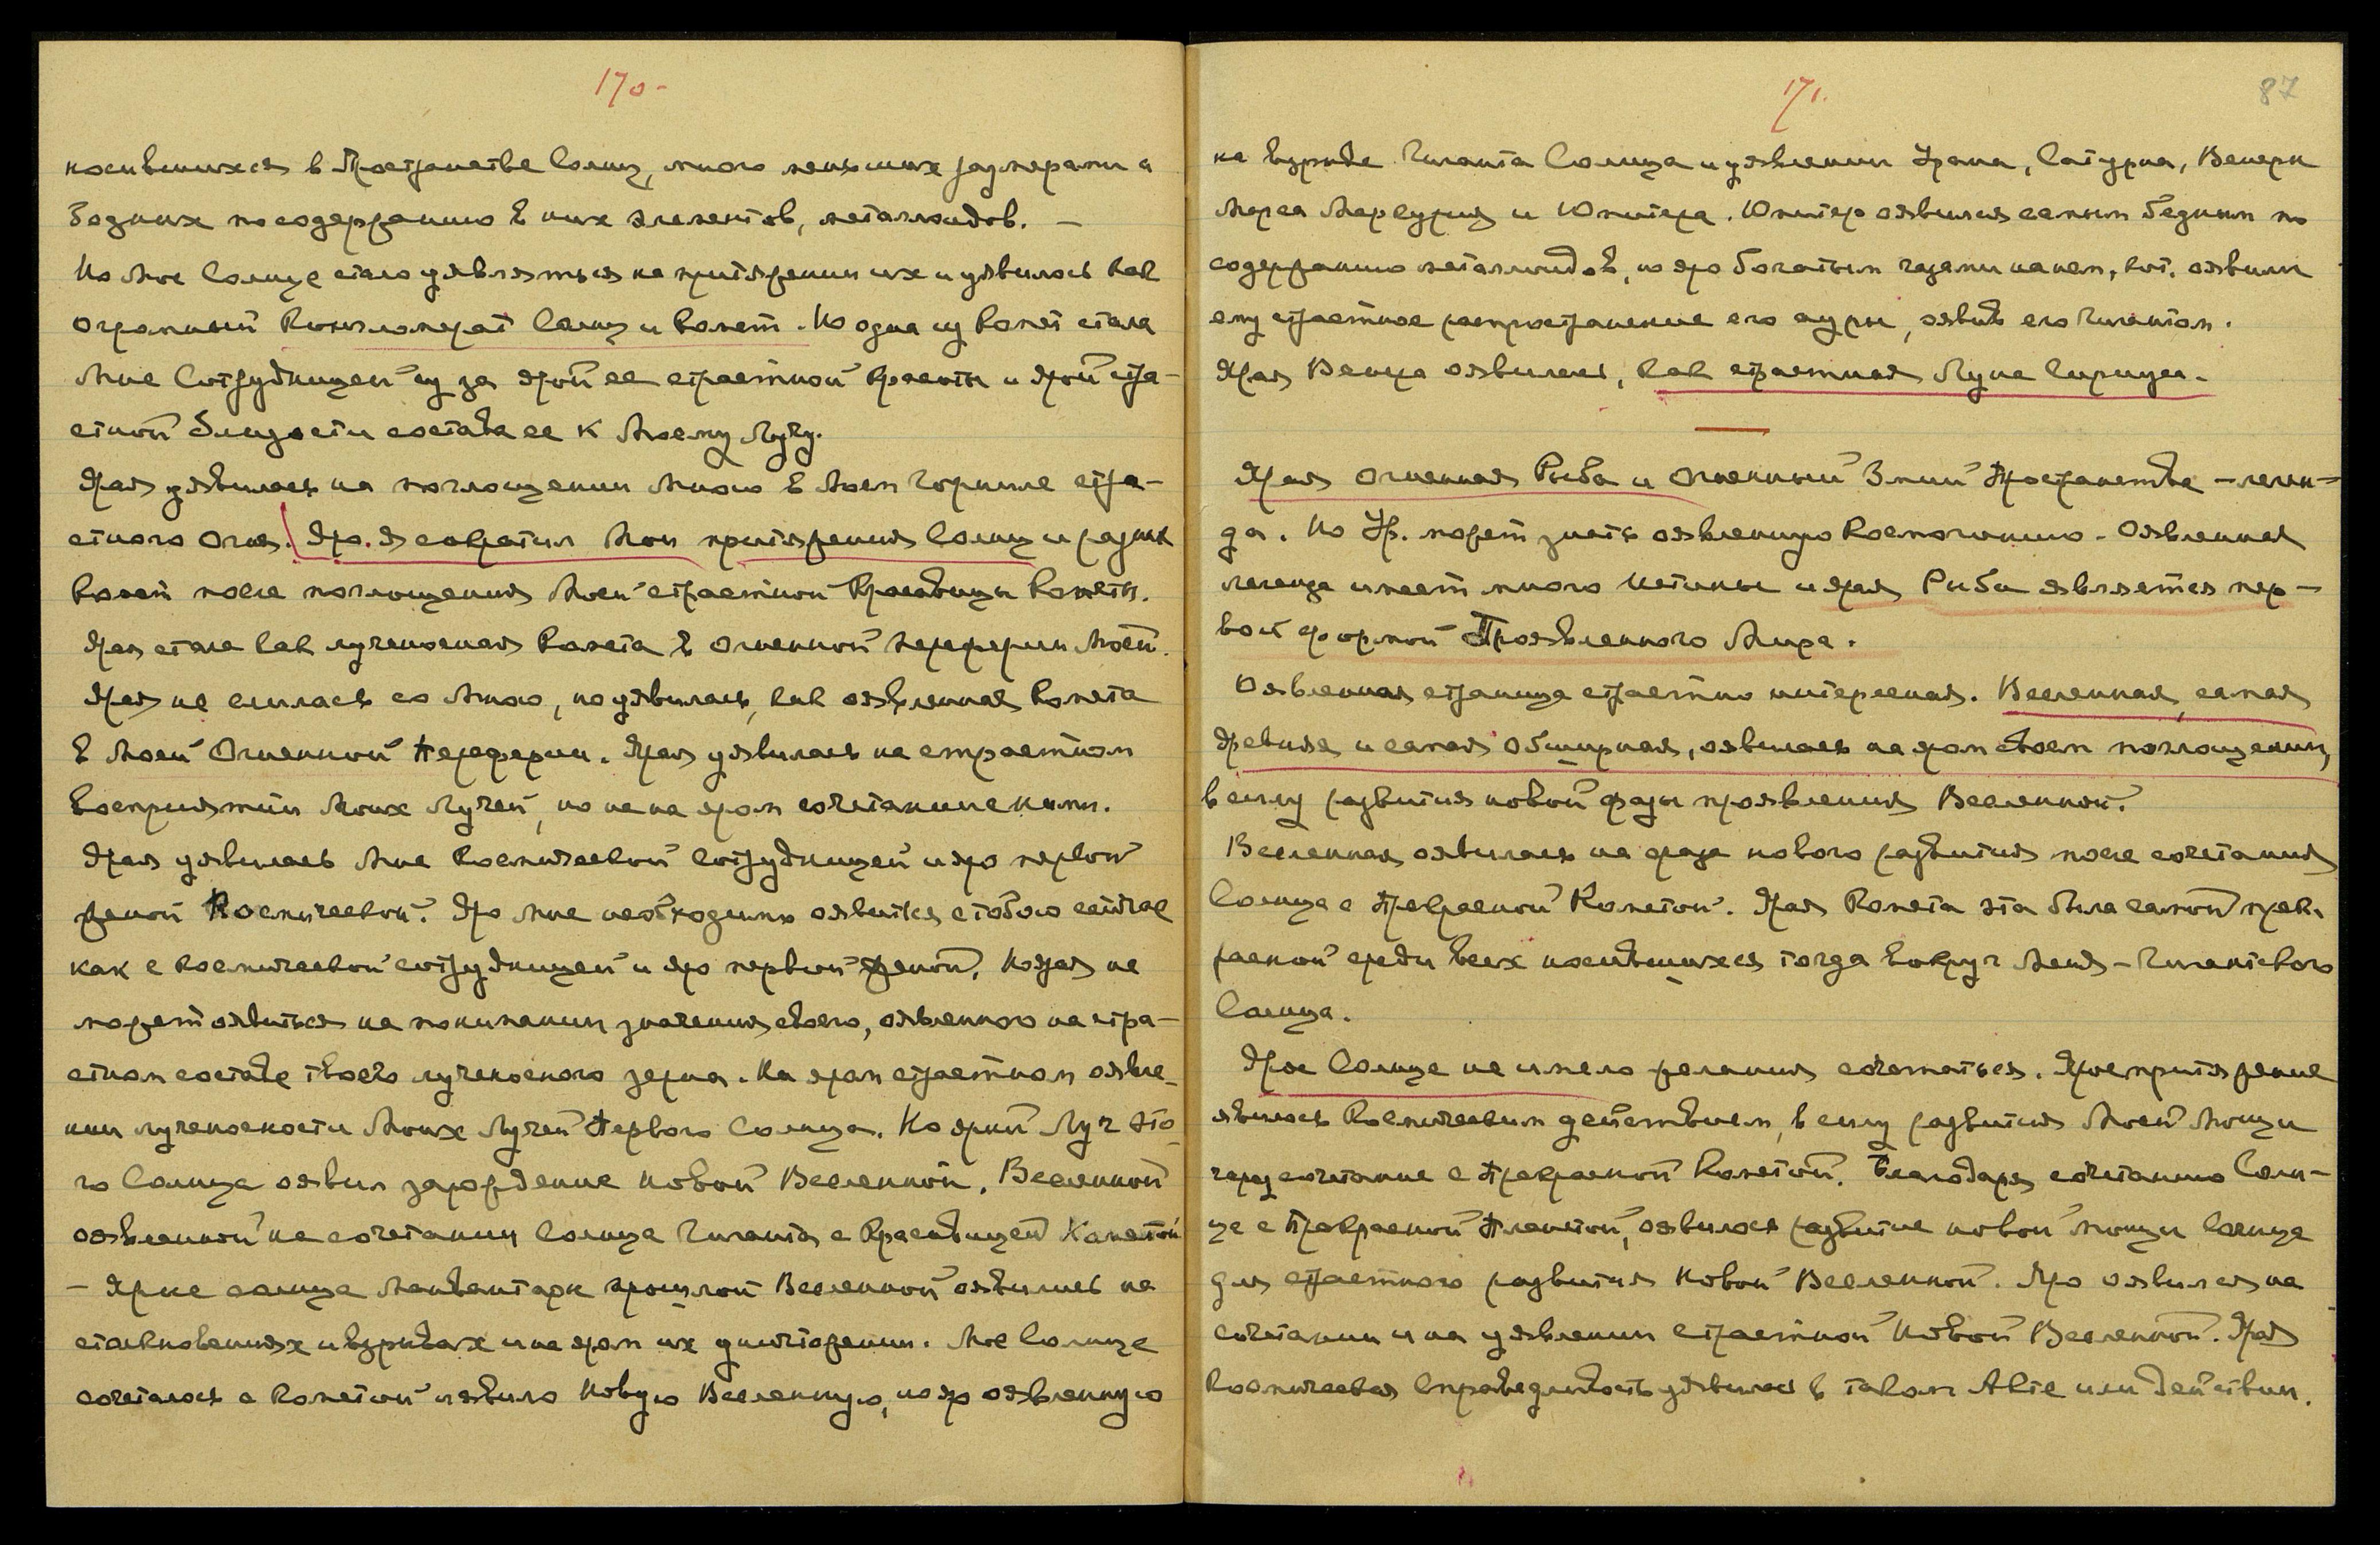 170-
носившихся в Пространстве Солнц, много меньших размерами и
бедных по содержанию в них элементов, металлоидов. –
Но Мое Солнце стало уявляться на притяжении их и уявилось как
огромный Конгломерат Солнц и Комет. Но одна из Комет стала
Мне Сотрудницей из за ярой ее страстной Красоты и ярой стра-
стной близости состава ее к Моему Лучу.
Ярая уявилась на поглощении Мною в Моем Горниле стра-
стного Огня. Яро Я сократил Мои притяжения Солнц и разных
Комет после поглощения Моей страстной Красавицы Кометы.
Ярая стала как лученосная Комета в Огненной Переферии Моей.
Ярая не слилась со Мною, но уявилась, как оявленная Комета
в Моей Огненной Переферии. Ярая уявилась на страстном
восприятии Моих Лучей, но не на яром сочетании с ними.
Ярая уявилась Мне Космической сотрудницей и яро первой
женой Космической. Яро Мне необходимо оявиться с тобою сейчас
как с космической сотрудницей и яро первой женой, но ярая не
может оявиться на понимании значения своего, оявленного на стра-
стном составе твоего лученосного зерна. На яром страстном оявле-
нии лученосности Моих Лучей Первого Солнца. Но ярый Луч это-
го Солнца оявил зарождение новой Вселенной. Вселенной
оявленной на сочетании Солнца Гиганта с Красавицей Кометой
– Ярые солнца Манвантары прошлой Вселенной оявились на
столкновениях и взрывах и на яром их уничтожении. Мое Солнце
сочеталось с Кометой и явило Новую Вселенную, но яро оявленную
171.
87
на взрыве Гиганта Солнца и уявлении Урана, Сатурна, Венеры
Марса Меркурия и Юпитера. Юпитер оявился самым бедным по
содержанию металлоидов, но яро богатым газами на нем, кот. оявили
ему страстное распространение его ауры, оявив его Гигантом.
Ярая Венера оявилась, как страстная Луна Сириуса.
Ярая Огненная Рыба и Огненный Змий Пространства – леген-
да. Но Ур. может знать оявленную Космогонию. Оявленная
легенда имеет много Истины и ярая Рыба является пер-
вой формой Проявленного Мира.
Оявленная страница страстно интересная. Вселенная, самая
древняя и самая обширная, оявилась на яром своем поглощении,
в силу развития новой фазы проявления Вселенной.
Вселенная оявилась на фазе нового развития после сочетания
Солнца с Прекрасной Кометой. Ярая Комета эта была самой прек-
расной среди всех носившихся тогда вокруг Меня – Гигантского
Солнца.
Ярое Солнце не имело желания сочетаться. Ярое притяжение
явилось Космическим действием, в силу развития Моей Мощи
через сочетание с Прекрасной Кометой. Благодаря сочетанию Солн-
ца с Прекрасной Планетой, оявилось развитие новой мощи Солнца
для страстного развития Новой Вселенной. Яро оявился на
сочетании и на уявлении страстной Новой Вселенной. Ярая
Космическая Справедливость уявилась в таком Акте или действии.